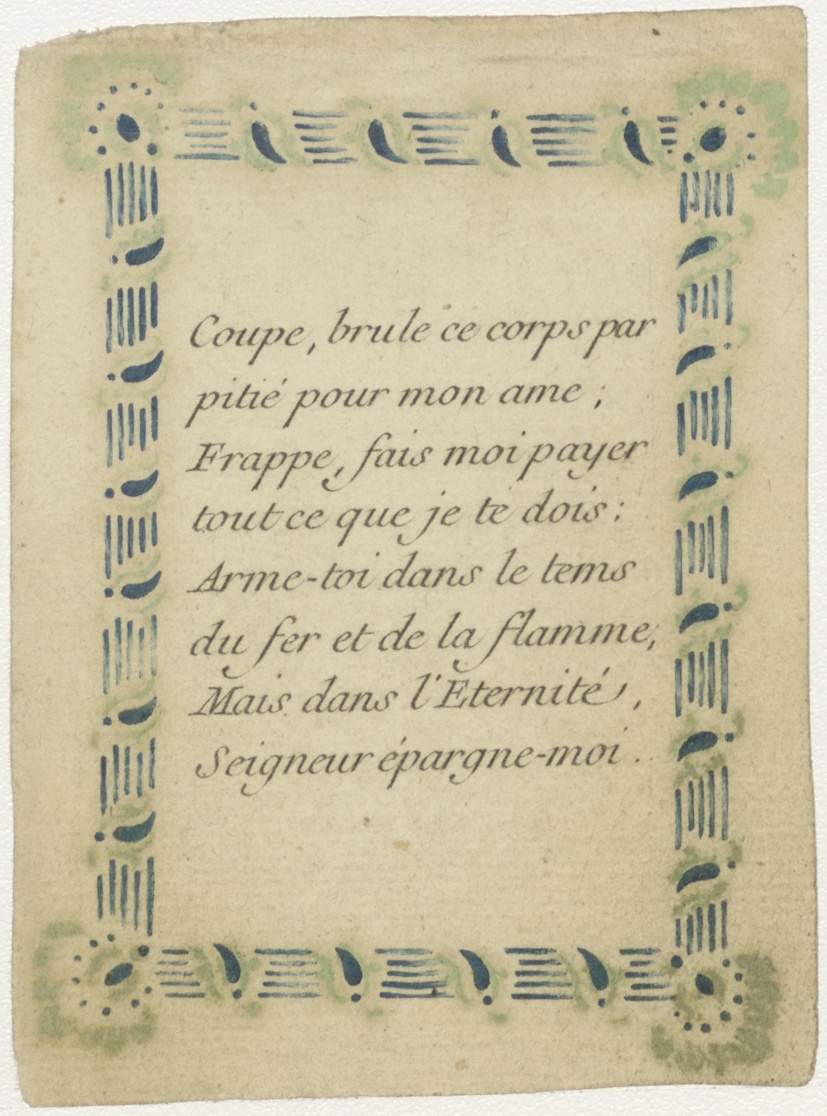 Coupe, brule ce corps par
pitié pour mon ame ;
Frappe, fais moi payer
tout ce que je te dois :
Arme-toi dans le tems
du fer et de la flamme,
Mais dans l'Eternité,
Seigneur épargne-moi.